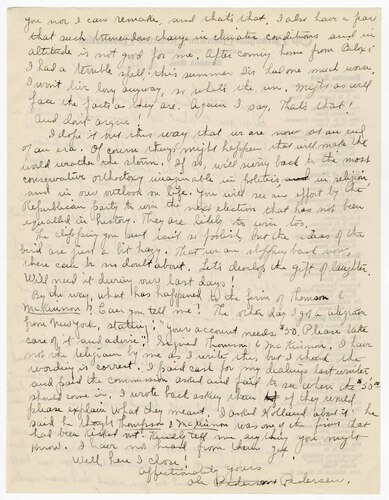 you nor I can remake, and that's that. I also have a fear
that such tremendous change in climatic conditions and in
altitude is not good for me. After coming home from Biloxi
I had a terrible spell: this summer Sis has one much worse.
I won't live long anyway, so what's the use. Might as well
face the facts as they are. Again I say, That's that!
And don't argue!
I dope it out this way that we are now at an end
of an era. Of course things might happen that will make the
world weather the storm. If so, will swing back to the most
conservative orthodoxy imaginable in politics, in religion
and in our outlook on life. You will see an effort by the
Republican party to win the next election that has not been
equaled in history. They are likely to win too.
The clipping you sent isn't so foolish, but the ideas of the
bird are just a bit hazy. That we are slipping back now,
there can be no doubt about. Let's develop the gift of laughter.
Will need it during our last days!
By the way, what has happened to the firm of Thomson &
McKinnon? Can you tell me? The other day I got a telegram
from New York, stating: "Your account needs $50. Please take
care of it and advise". Signed Thomson & McKinnon. I have
not the telegram by me as I write this but I think the
wording is correct. I paid cash for my dealings last winter
and paid the commission asked and fail to see where the $50.00
should come in. I wrote back asking them if they would
please explain what they meant. I asked Holland about it: he
said he thought Thompson & McKinnon was one of the firms that
had been kicked out. Kindly tell me anything you might
know. I have not heard from them yet.
Well, here I close!
Affectionately yours
Ole Pedersen